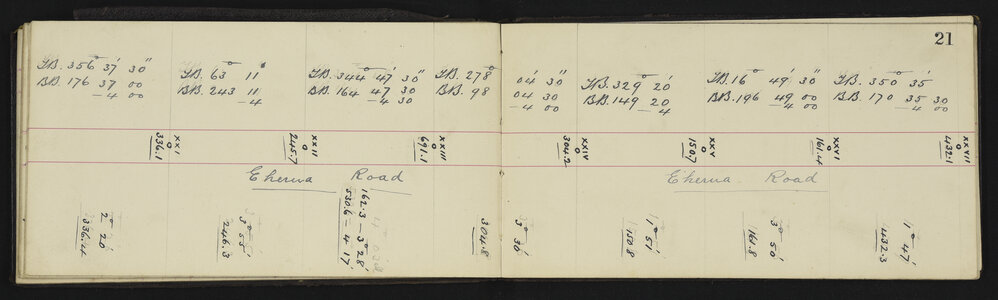 21
FB. 356° 37' 30"
BB. 176 37 00
-4 00
FB. 63° 11'
BB. 243 11
-4
FB. 344° 47' 30"
BB. 164 47 30
-4 30
FB. 278° 04' 30"
BB. 98 04 30
-4 00
FB. 329° 20'
BB. 149 20
-4
FB. 16° 49' 30"
BB. 196 49 00
-4 00
FB. 350° 35'
BB. 170 35 30
-4 00
XXI
O
336.1
XXII
O
245.7
XXIII
O
691.1
XXIV
O
304.2
XXV
O
150.7
XXVI
O
161.4
XXVII
O
432.1
Eherua Road
Eherua Road
2° 20'
336.44
3° 55'
246.3
162.3 - 3° 28'
530.6 - 4 17'
3° 30'
304.8
1° 51'
150.8
3° 50'
161.8
1° 47'
432.3